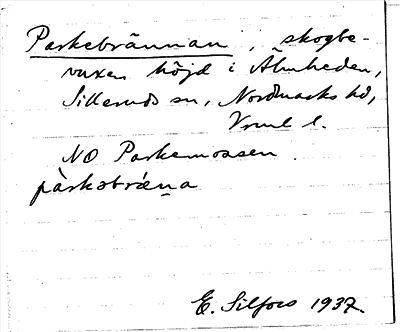 Parkebrännan, skogbe-
vuxen höjd i Älmheden,
Silleruds sn, Nordmarks hd,
Vrml l.
NO Parkemossen.
pàrkəbrǽn̥a
E. Silfors 1937.